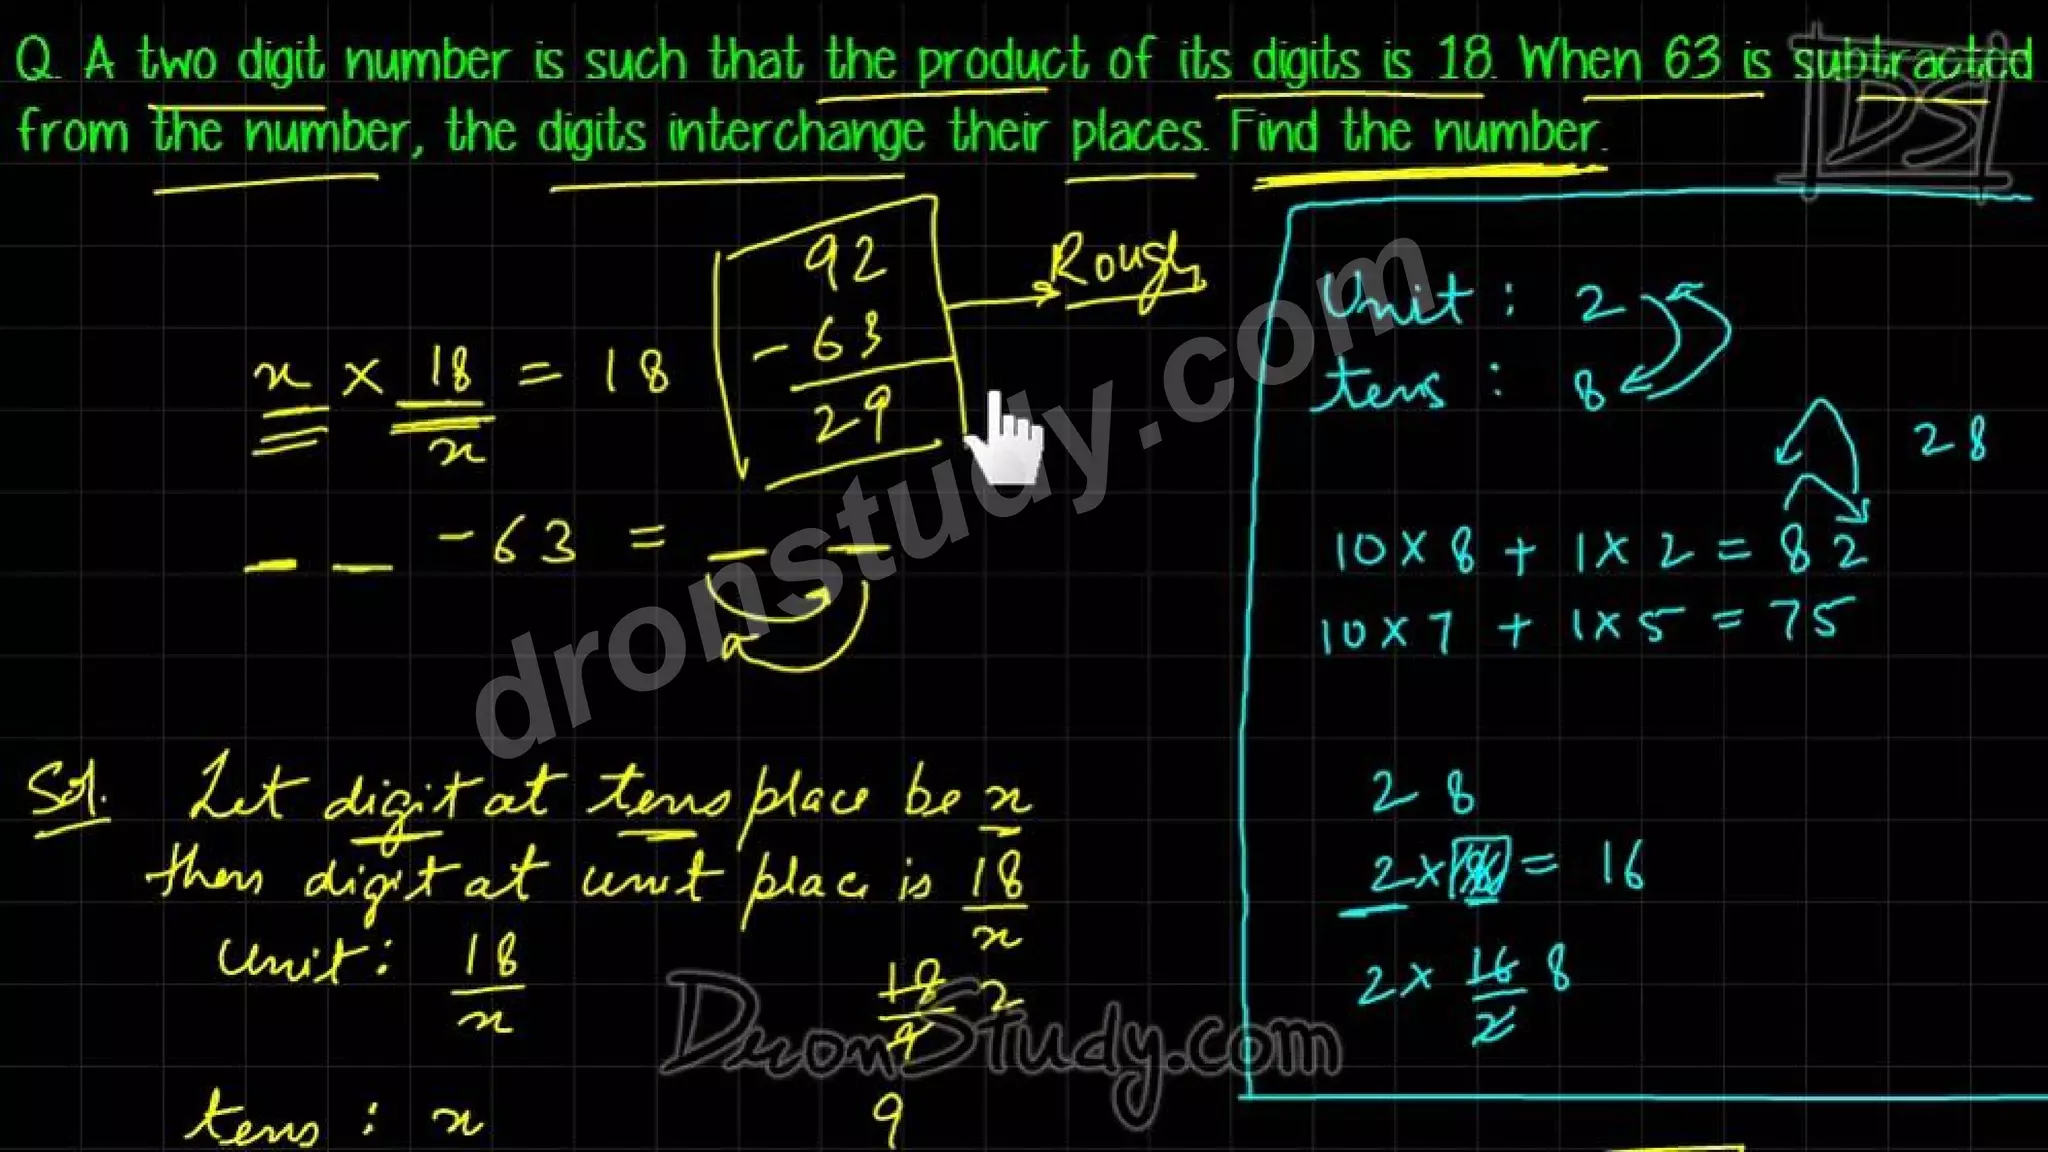 Q. A two digit number is such that the product of its digits is 18. When 63 is subtracted
from the number, the digits interchange their places. Find the number.
DS
92
- 63
29
Rough
x × 18/x = 18
_ _ - 63 = _ _
Sol. Let digit at tens place be x
then digit at unit place is 18/x
unit : 18/x
18/9 2
tens : x
9
Unit : 2
tens : 8
28
10 × 8 + 1 × 2 = 82
10 × 7 + 1 × 5 = 75
28
2 × = 16
2 × 16/2 8
dronstudy.com
DronStudy.com